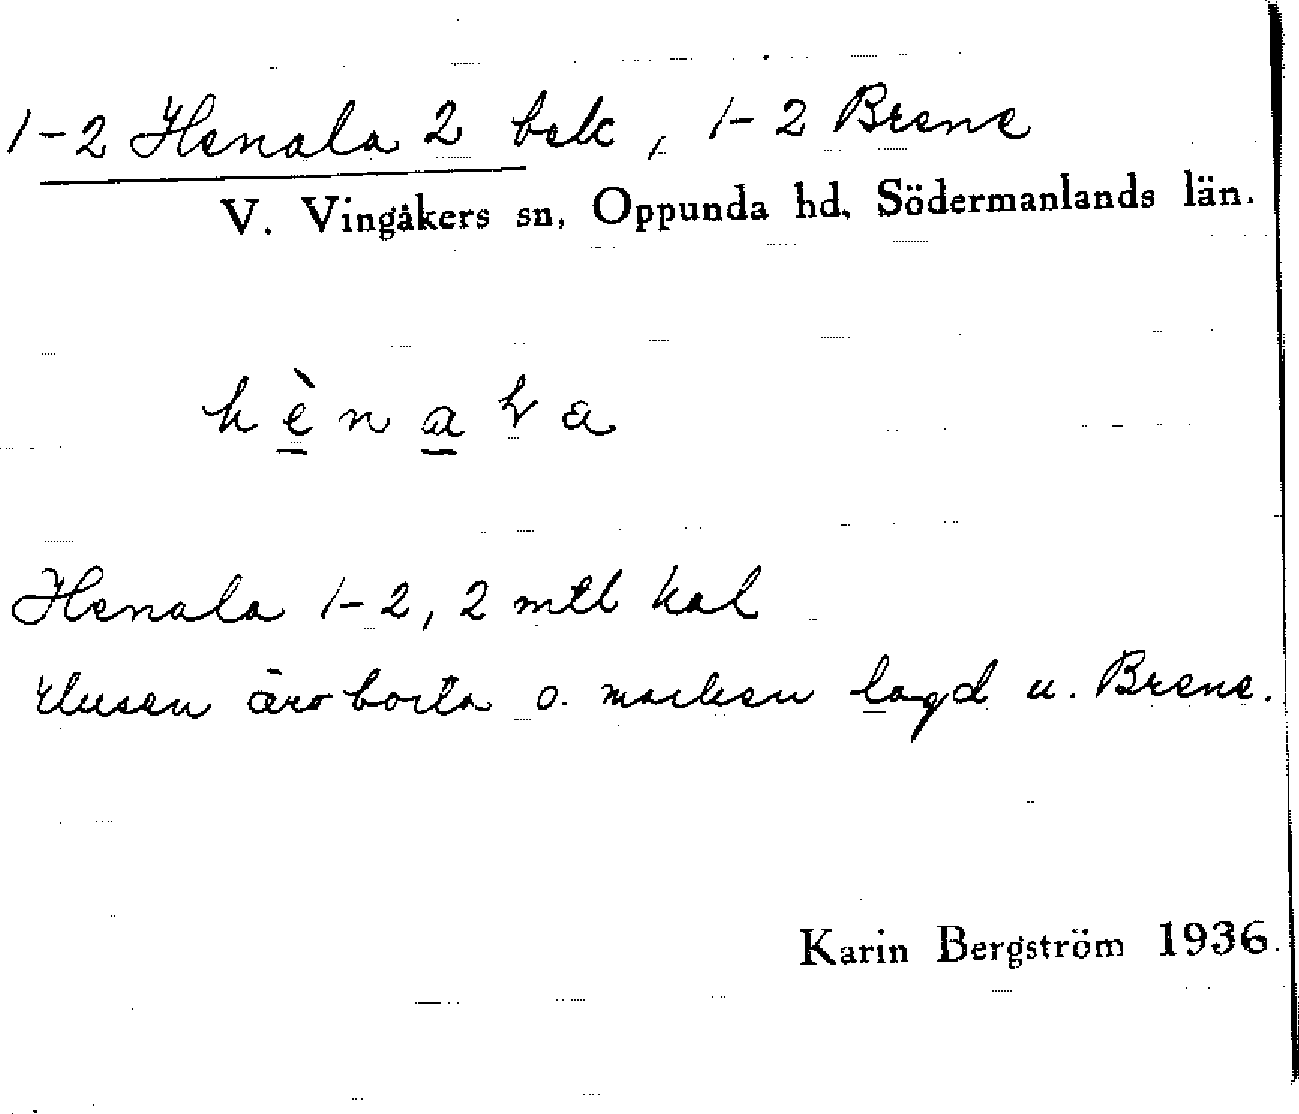 1-2 Henala 2 bek, 1-2 Brene
V. Vingåkers sn, Oppunda hd, Södermanlands län.
hènala
Henala 1-2, 2 mtl kal
Husen äro borta o. marken lagd u. Brene.
Karin Bergström 1936.